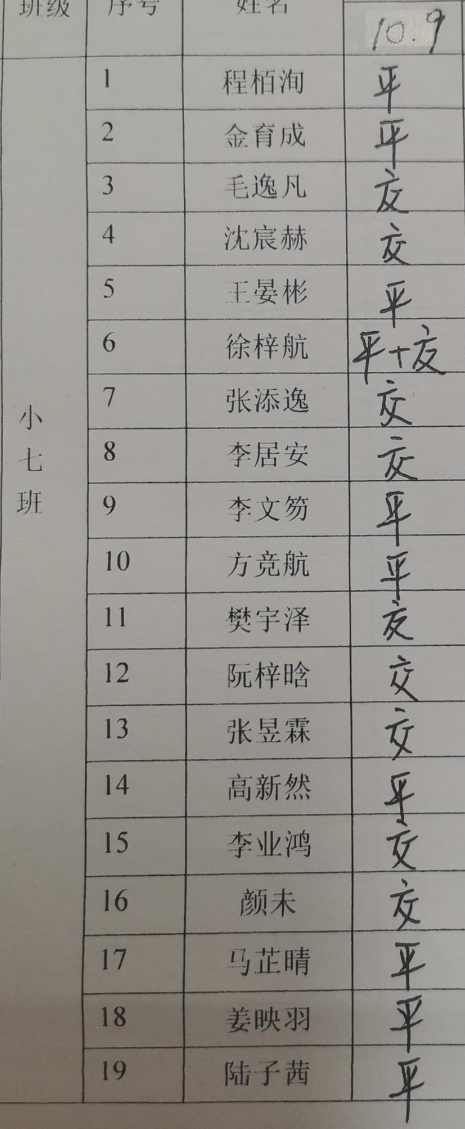 班级 序号 姓名
10.9
小七班
1 程栢洵 平
2 金育成 平
3 毛逸凡 交
4 沈宸赫 交
5 王晏彬 平
6 徐梓航 平+交
7 张添逸 交
8 李居安 交
9 李文笏 平
10 方竞航 平
11 樊宇泽 交
12 阮梓晗 交
13 张昱霖 交
14 高新然 平
15 李业鸿 交
16 颜未 交
17 马芷晴 平
18 姜映羽 平
19 陆子茜 平